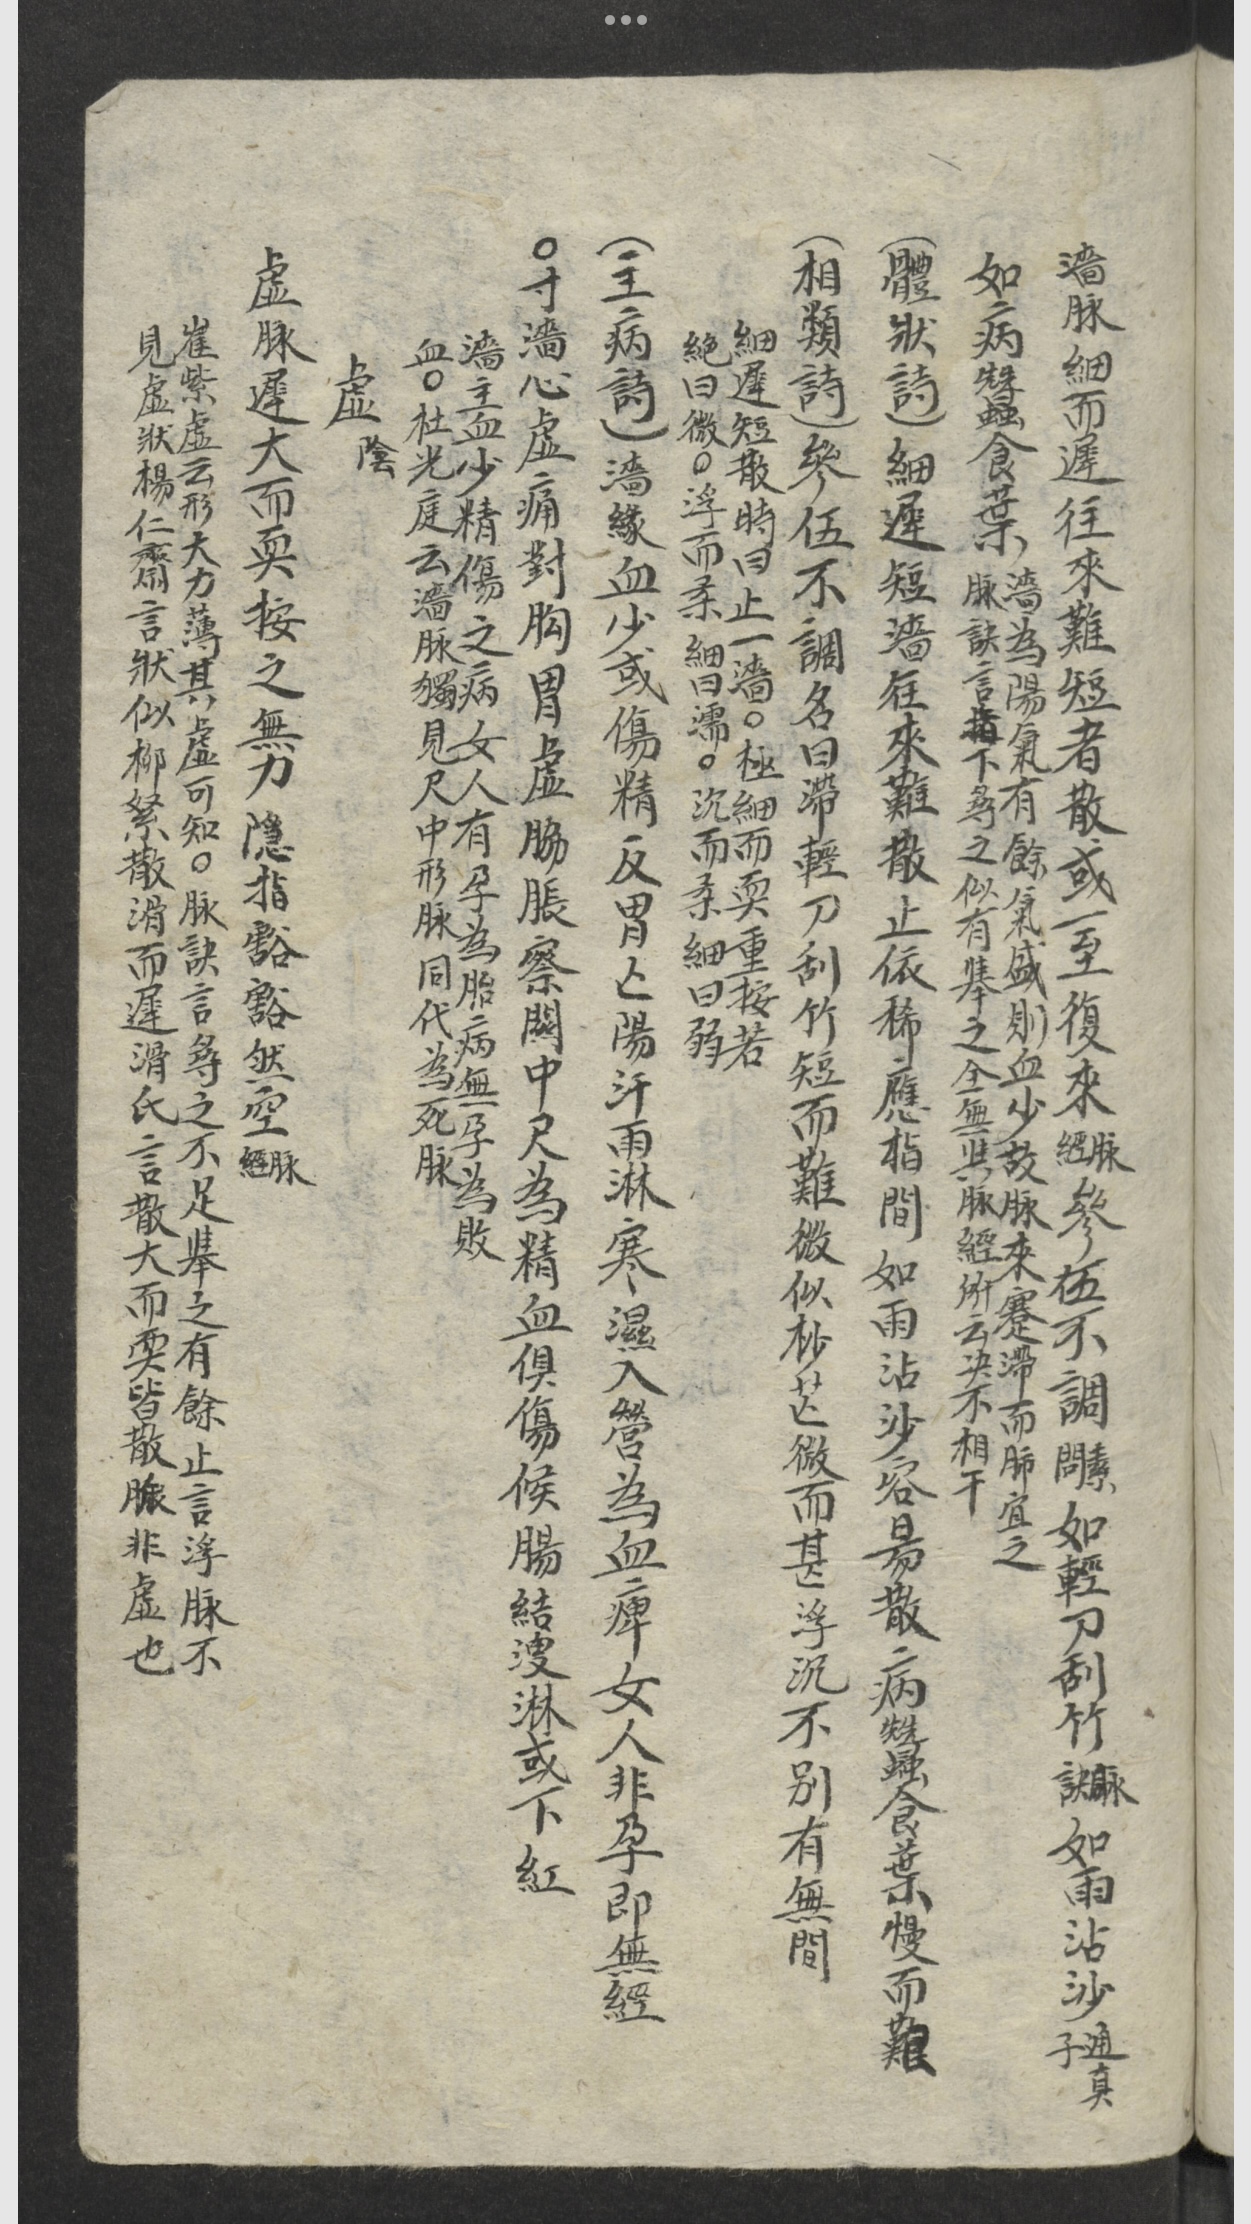 濇脉細而遲往來難短者散或一至復來脉經參伍不調素問如輕刀刮竹脉訣如雨沾沙通真子
如病蠶食葉濇為陽氣有餘氣盛則血少故脉來蹇滯而肺宜之
脉訣言指下尋之似有舉之全無與脉經所云决不相干
(體狀詩)細遲短濇徃來難散止依稀應指間如雨沾沙容昜散病蠶食葉慢而難
(相類詩)參伍不調名曰滯輕刀刮竹短而難微似杪芒微而甚浮沉不別有無間
細遲短散時曰止一濇○極細而耎重按若
絶曰微○浮而柔細曰濡○沉而柔細曰弱
(主病詩)濇緣血少或傷精反胃亡陽汗雨淋寒濕入營為血痺女人非孕即無經
○寸濇心虛痛對胸胃虛脇脹察關中尺為精血俱傷候腸結溲淋或下紅
濇主血少精傷之病女人有孕為胎病無孕為敗
血○杜光庭云濇脉獨見尺中形脉同代為死脉
虛陰
虛脉遲大而耎按之無力隱指豁豁然空脉經
崔紫虛云形大力薄其虛可知○脉訣言尋之不足舉之有餘止言浮脉不
見虛狀楊仁齋言狀似柳絮散滑而遲滑氏言散大而耎皆散脉非虛也